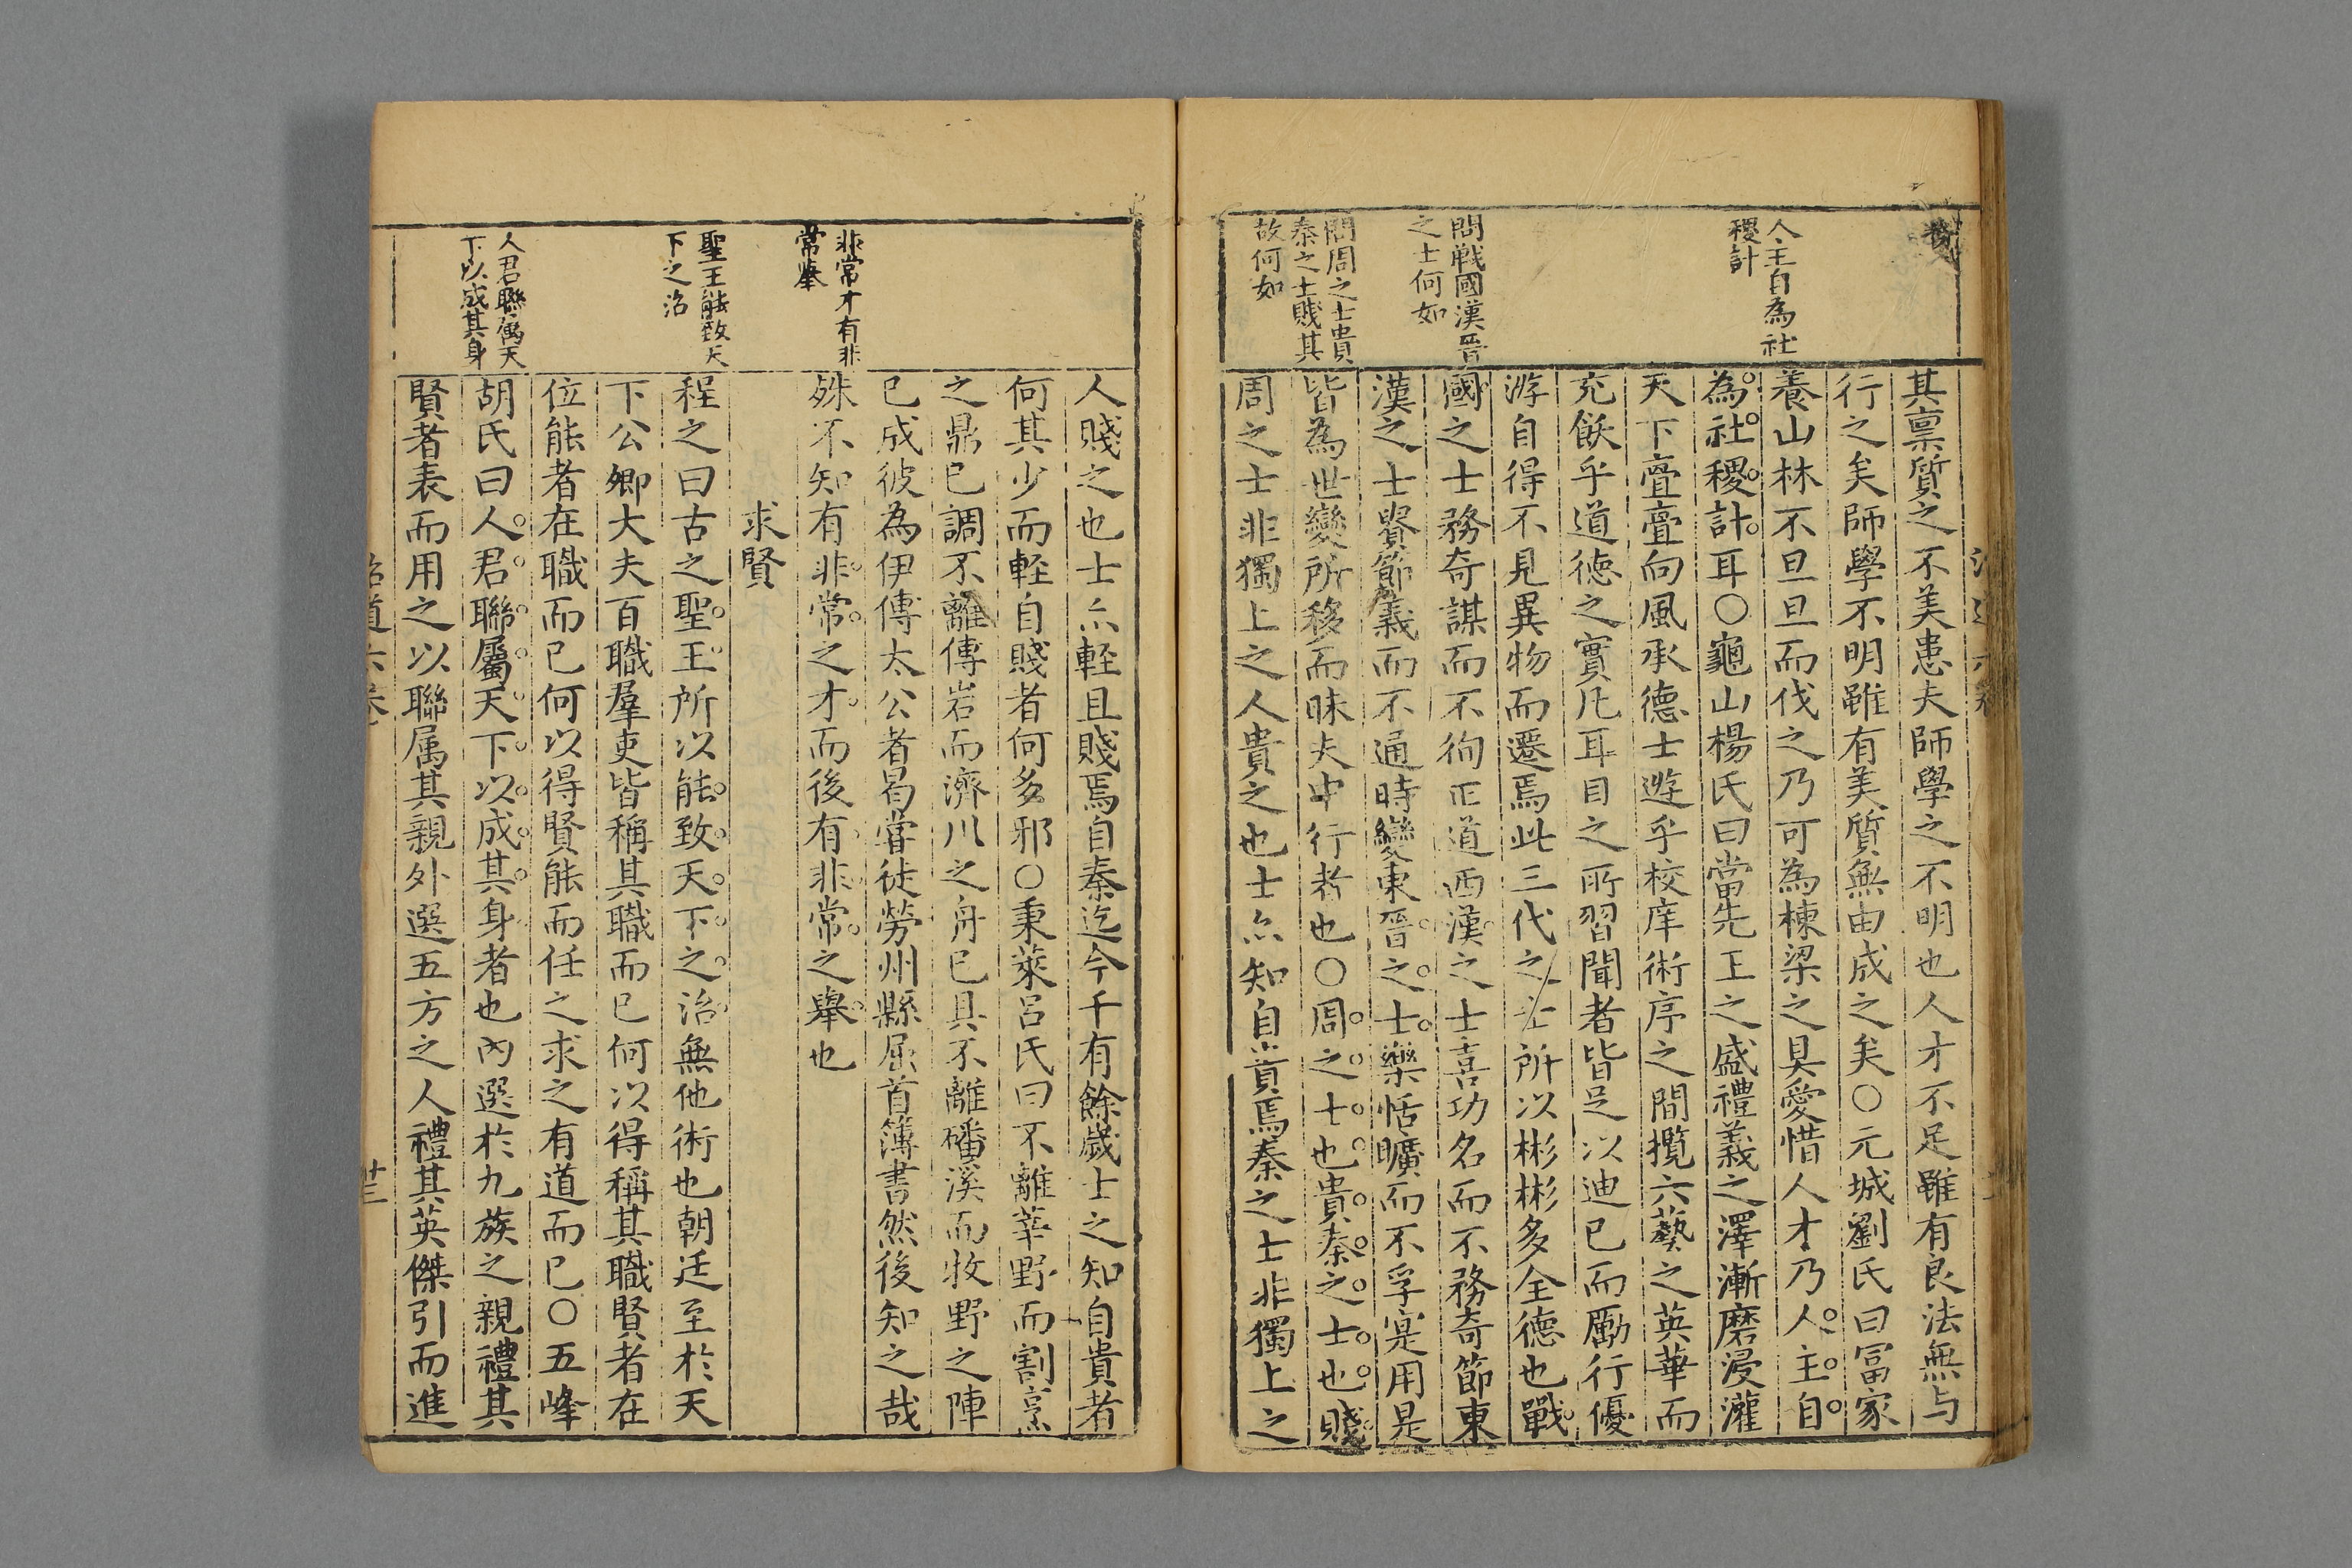 人主自為社
稷計
問戦國漢晋
之士何如
問周之士貴
秦之士賤其
故何如
其禀質之不美患夫師學之不明也人才不足雖有良法無与
行之矣師學不明雖有美質無由成之矣○元城劉氏曰冨家
養山林不旦旦而伐之乃可為棟梁之具愛惜人才乃人主自
為社稷計耳○龜山楊氏曰當先王之盛禮義之澤漸磨浸灌
天下亹亹向風承德士遊乎校庠術序之間攬六藝之英華而
充飫乎道德之實凡耳目之所習聞者皆足以迪已而勵行優
游自得不見異物而遷焉此三代之士所以彬彬多全德也戰
國之士務奇謀而不徇正道西漢之士喜功名而不務奇節東
漢之士貴節義而不通時變東晋之士樂恬曠而不孚寔用是
皆為世變所移而昧夫中行者也○周之士也貴秦之士也賤
周之士非獨上之人貴之也士亦知自貴焉秦之士非獨上之
非常才有非
常舉
聖王能致天
下之治
人君聯属天
下以成其身
人賤之也士亦輕且賤焉自秦迄今千有餘歲士之知自貴者
何其少而輕自賤者何多邪○秉萊呂氏曰不離莘野而割烹
之鼎已調不離傅岩而濟川之舟已具不離磻溪而牧野之陣
已成彼為伊傅太公者曷甞徒勞州縣屈首簿書然後知之哉
殊不知有非常之才而後有非常之舉也
求賢
程之曰古之聖王所以能致天下之治無他術也朝廷至於天
下公卿大夫百職羣吏皆稱其職而已何以得稱其職賢者在
位能者在職而已何以得賢能而任之求之有道而已○五峰
胡氏曰人君聯屬天下以成其身者也內選於九族之親禮其
賢者表而用之以聯属其親外選五方之人禮其英傑引而進
道六卷
廿三